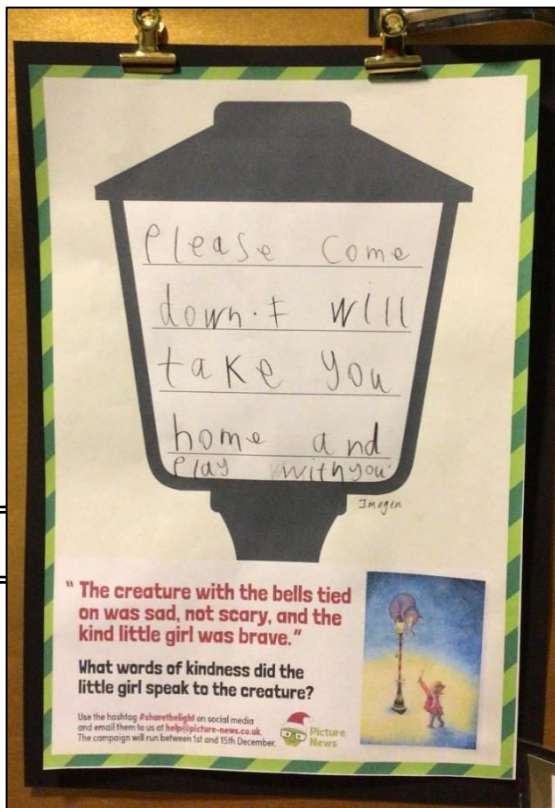 Please come
down. I will
take you
home and
play with you.
Imogen
" The creature with the bells tied
on was sad, not scary, and the
kind little girl was brave."
What words of kindness did the
little girl speak to the creature?
Use the hashtag #sharethelight on social media
and email them to us at help@picture-news.co.uk.
The campaign will run between 1st and 15th December.
Picture
News